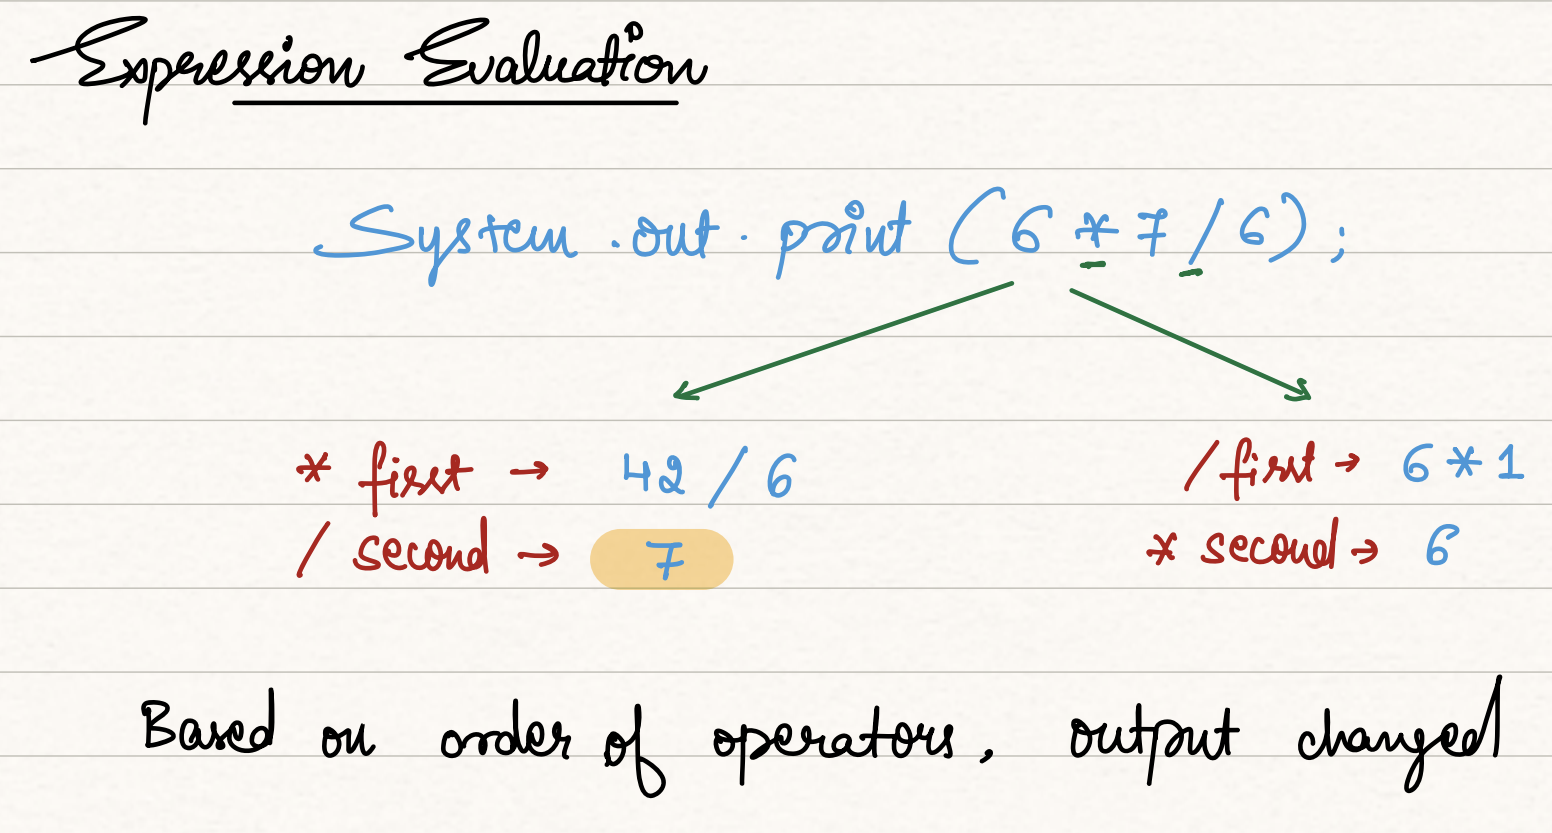 Expression Evaluation
System.out.print (6 * 7 / 6);
* first → 42 / 6
/ first → 6 * 1
/ second → 7
* second → 6
Based on order of operators, output changed